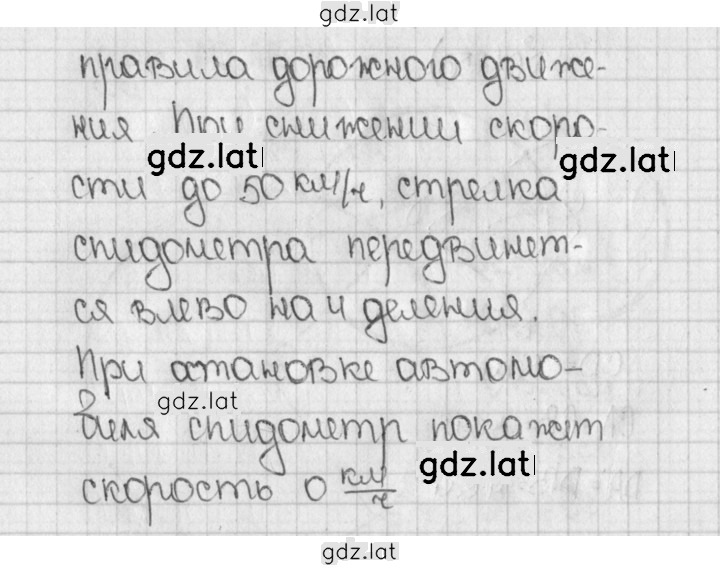 gdz.lat
правила дорожного движе-
ния. При снижении скоро-
gdz.lat
gdz.lat
сти до 50 км/ч, стрелка
спидометра передвинет-
ся влево на 4 деления.
При остановке автомо-
gdz.lat
биля спидометр покажет
gdz.lat
скорость 0 км/ч
gdz.lat